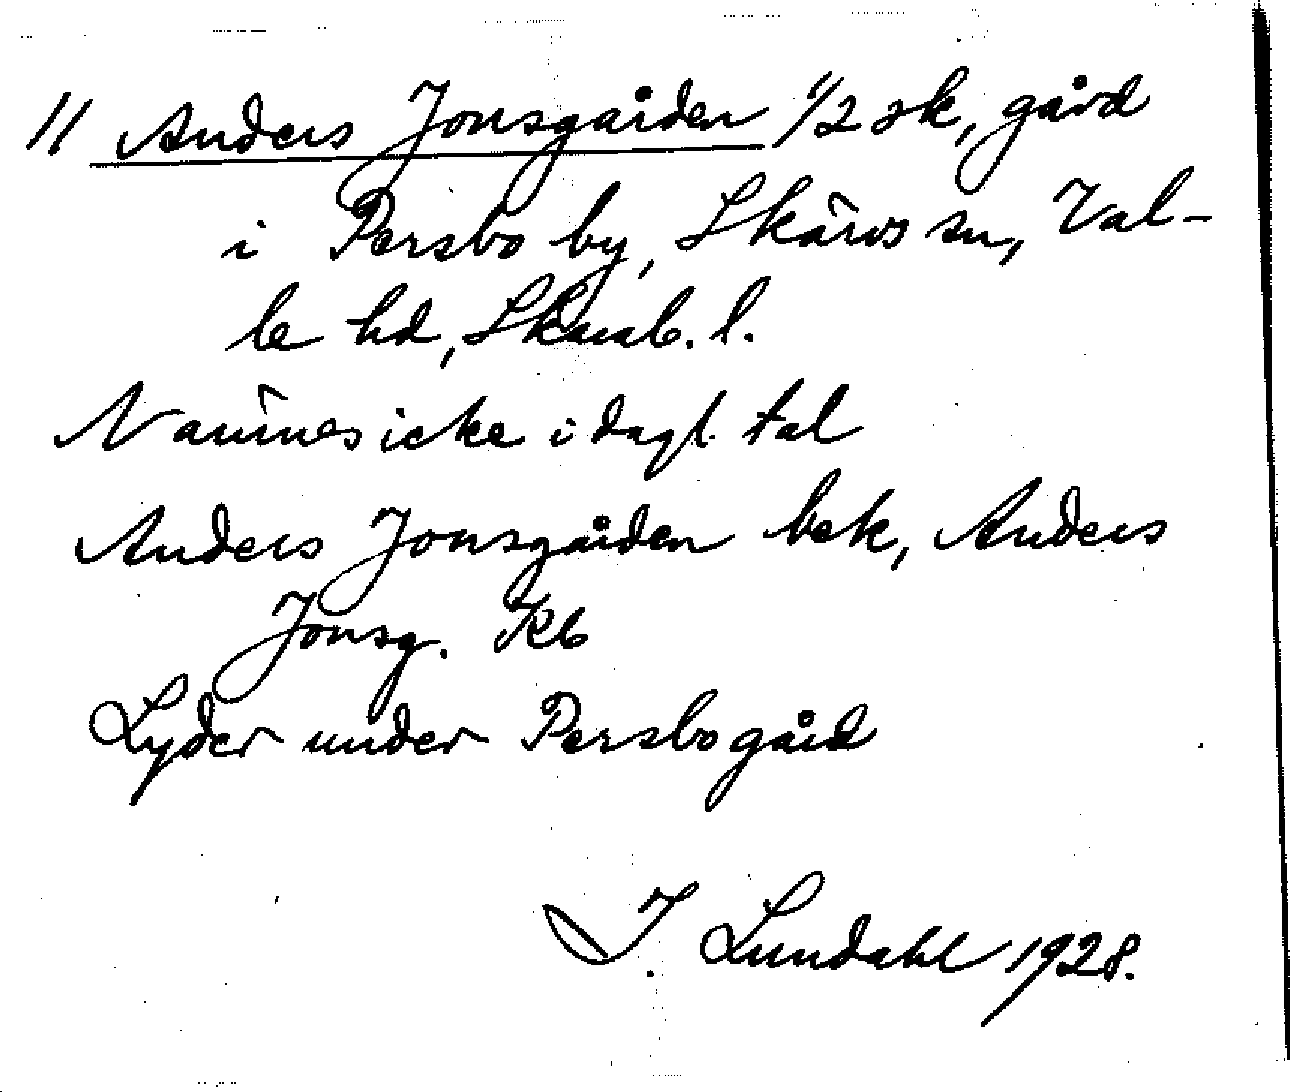 // Anders Jonsgården 1/2 sk, gård
i Persbo by, Skärvs sn, Val-
le hd, Skarab. l.
Namnes icke i dagl. tal
Anders Jonsgården bek, Anders
Jonsg. Kb
Lyder under Persbogård
I. Lundahl 1928.